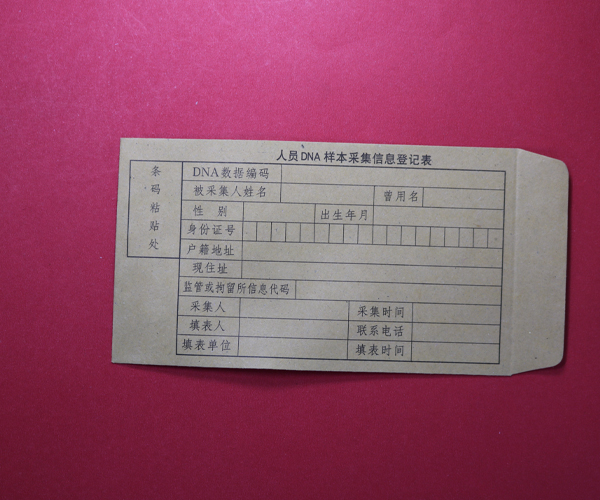 人员DNA样本采集信息登记表
条码粘贴处
DNA数据编码
被采集人姓名 曾用名
性 别 出生年月
身份证号
户籍地址
现住址
监管或拘留所信息代码
采集人 采集时间
填表人 联系电话
填表单位 填表时间